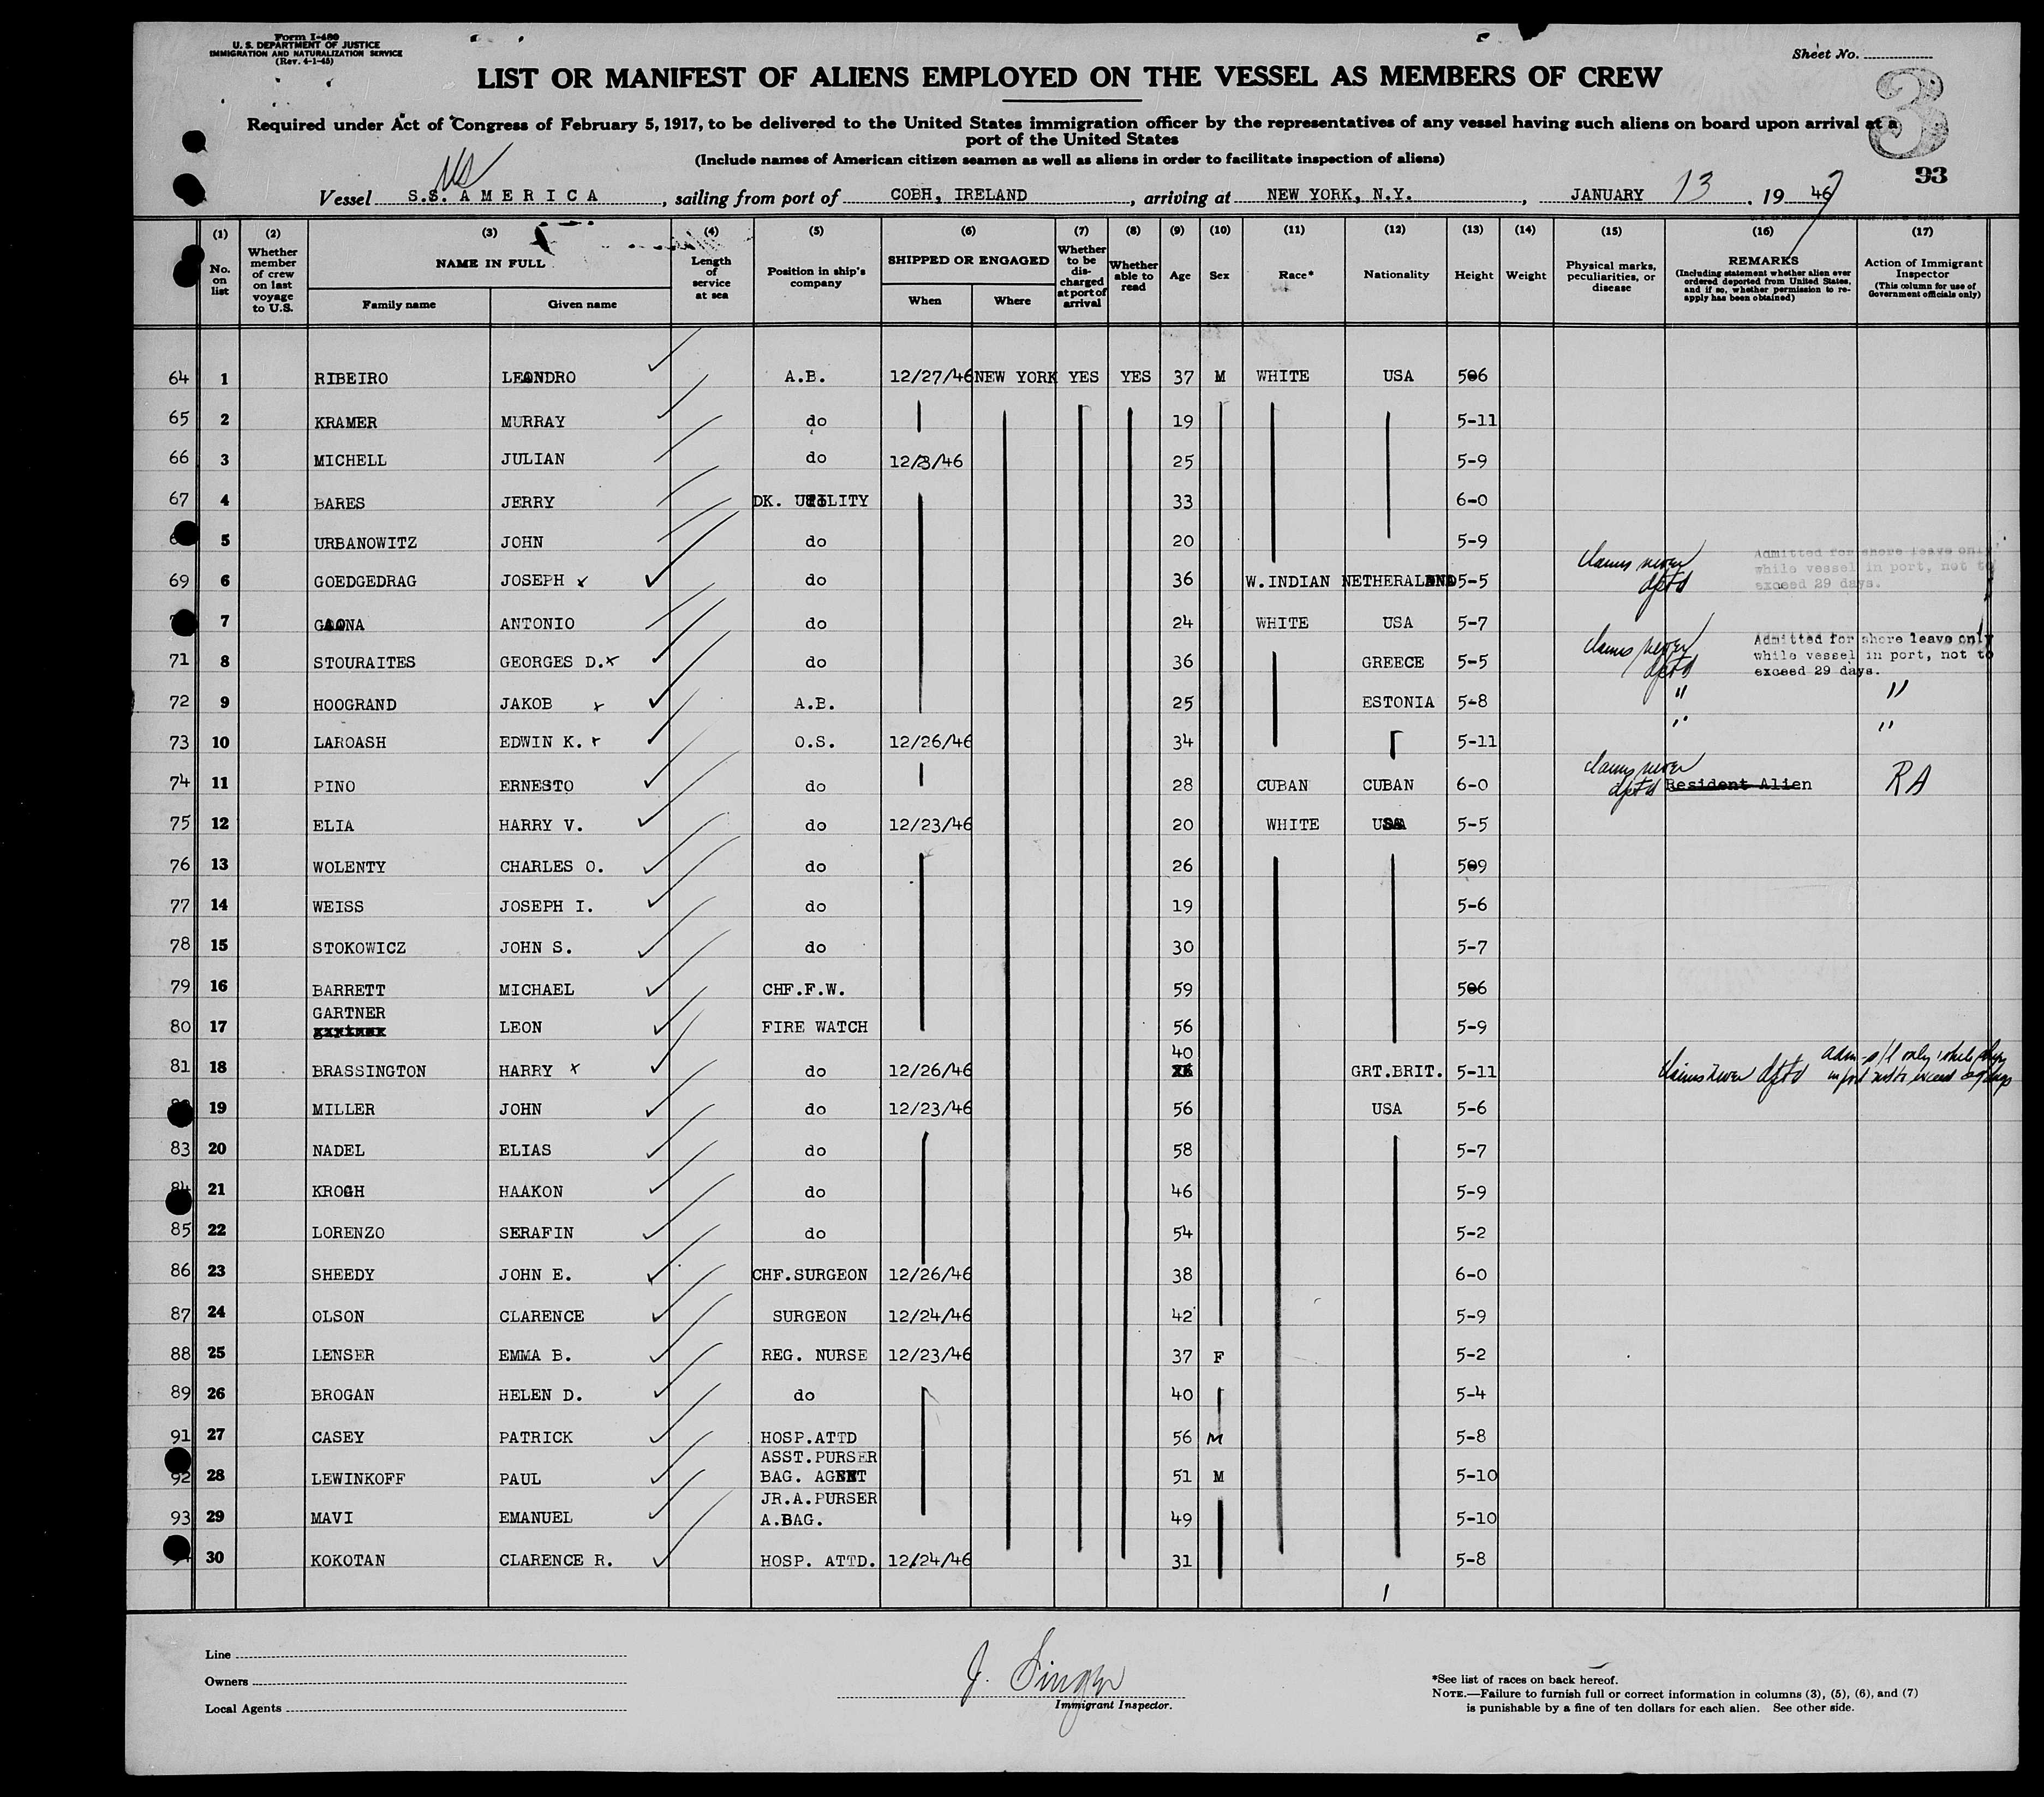 Form I-480
U. S. DEPARTMENT OF JUSTICE
IMMIGRATION AND NATURALIZATION SERVICE
(Rev. 4-1-45)
Sheet No.
3
LIST OR MANIFEST OF ALIENS EMPLOYED ON THE VESSEL AS MEMBERS OF CREW
Required under Act of Congress of February 5, 1917, to be delivered to the United States immigration officer by the representatives of any vessel having such aliens on board upon arrival at a
port of the United States
(Include names of American citizen seamen as well as aliens in order to facilitate inspection of aliens)
93
US
Vessel S.S. AMERICA, sailing from port of COBH, IRELAND, arriving at NEW YORK, N.Y., JANUARY 13, 1947
(1) (2) (3) (4) (5) (6) (7) (8) (9) (10) (11) (12) (13) (14) (15) (16) (17)
No. on list
Whether member of crew on last voyage to U.S.
NAME IN FULL
Family name Given name
Length of service at sea
Position in ship's company
SHIPPED OR ENGAGED
When Where
Whether to be discharged at port of arrival
Whether able to read
Age Sex Race* Nationality Height Weight
Physical marks, peculiarities, or disease
REMARKS
(Including statement whether alien ever ordered deported from United States, and if so, whether permission to reapply has been obtained)
Action of Immigrant Inspector
(This column for use of Government officials only)
64 1 RIBEIRO LEANDRO A.B. 12/27/46 NEW YORK YES YES 37 M WHITE USA 5-6
65 2 KRAMER MURRAY do 19 5-11
66 3 MICHELL JULIAN do 12/3/46 25 5-9
67 4 BARES JERRY DK. UTILITY 33 6-0
5 URBANOWITZ JOHN do 20 5-9
69 6 GOEDGEDRAG JOSEPH x do 36 W.INDIAN NETHERALAND 5-5 claims never dptd Admitted for shore leave only while vessel in port, not to exceed 29 days.
7 GAONA ANTONIO do 24 WHITE USA 5-7
71 8 STOURAITES GEORGES D. x do 36 GREECE 5-5 claims never dptd Admitted for shore leave only while vessel in port, not to exceed 29 days.
72 9 HOOGRAND JAKOB x A.B. 25 ESTONIA 5-8 " "
73 10 LAROASH EDWIN K. x O.S. 12/26/46 34 5-11 " "
74 11 PINO ERNESTO do 28 CUBAN CUBAN 6-0 claims never dptd Resident Alien RA
75 12 ELIA HARRY V. do 12/23/46 20 WHITE USA 5-5
76 13 WOLENTY CHARLES O. do 26 5-9
77 14 WEISS JOSEPH I. do 19 5-6
78 15 STOKOWICZ JOHN S. do 30 5-7
79 16 BARRETT MICHAEL CHF.F.W. 59 5-6
80 17 GARTNER LEON FIRE WATCH 56 5-9
81 18 BRASSINGTON HARRY x do 12/26/46 40 GRT.BRIT. 5-11 claims never dptd adm s/l only while ship in port not to exceed 29 days
19 MILLER JOHN do 12/23/46 56 USA 5-6
83 20 NADEL ELIAS do 58 5-7
84 21 KROGH HAAKON do 46 5-9
85 22 LORENZO SERAFIN do 54 5-2
86 23 SHEEDY JOHN E. CHF.SURGEON 12/26/46 38 6-0
87 24 OLSON CLARENCE SURGEON 12/24/46 42 5-9
88 25 LENSER EMMA B. REG. NURSE 12/23/46 37 F 5-2
89 26 BROGAN HELEN D. do 40 5-4
91 27 CASEY PATRICK HOSP.ATTD 56 M 5-8
92 28 LEWINKOFF PAUL ASST.PURSER BAG. AGENT 51 M 5-10
93 29 MAVI EMANUEL JR.A.PURSER A.BAG. 49 5-10
30 KOKOTAN CLARENCE R. HOSP. ATTD. 12/24/46 31 5-8
Line
Owners
Local Agents
J. Singer
Immigrant Inspector.
*See list of races on back hereof.
NOTE.—Failure to furnish full or correct information in columns (3), (5), (6), and (7)
is punishable by a fine of ten dollars for each alien. See other side.